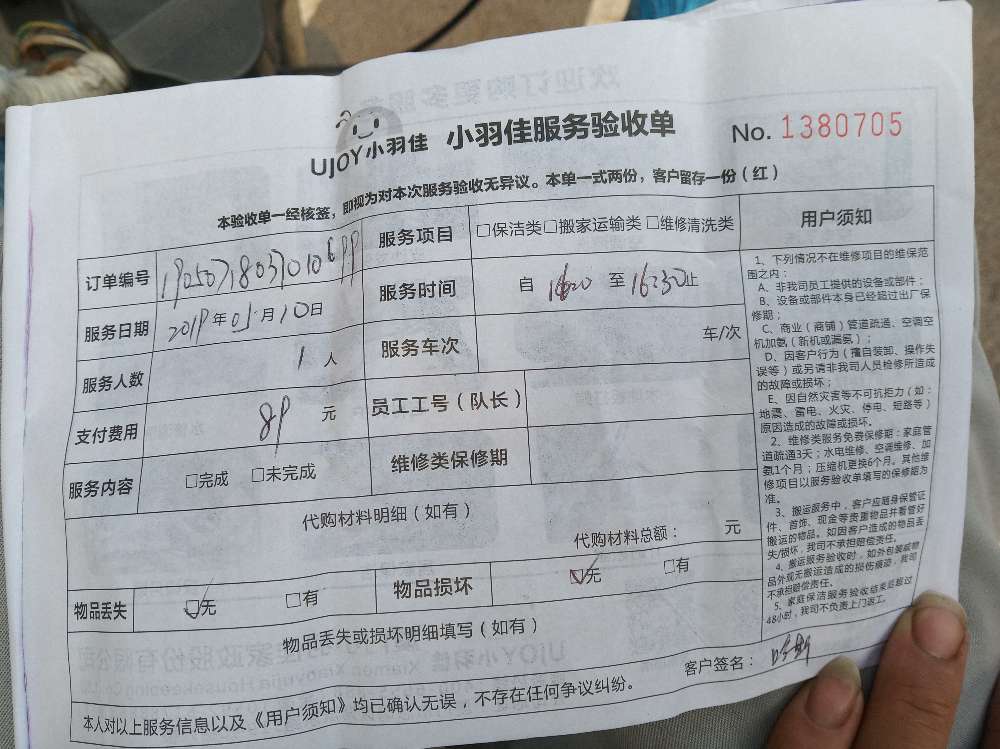 UJOY小羽佳 小羽佳服务验收单 No. 1380705
本验收单一经核签，即视为对本次服务验收无异议。本单一式两份，客户留存一份（红）
订单编号 服务项目 □保洁类□搬家运输类□维修清洗类
服务日期 2019年05月10日 服务时间 自 至 16:30止
服务人数 1人 服务车次 车/次
支付费用 89 元 员工工号（队长）
服务内容 □完成 □未完成 维修类保修期
代购材料明细（如有）
代购材料总额： 元
物品丢失 ☑无 □有 物品损坏 ☑无 □有
物品丢失或损坏明细填写（如有）
客户签名：
本人对以上服务信息以及《用户须知》均已确认无误，不存在任何争议纠纷。
用户须知
1、下列情况不在维修项目的维保范
围之内：
A、非我司员工提供的设备或部件；
B、设备或部件本身已经超过出厂保
修期；
C、商业（商铺）管道疏通、空调空
机加氨（新机或漏氨）；
D、因客户行为（擅自装卸、操作失
误等）或另请非我司人员检修所造成
的故障或损坏；
E、因自然灾害等不可抗拒力（如：
地震、雷电、火灾、停电、短路等）
原因造成的故障或损坏。
2、维修类服务免费保修期：家庭管
道疏通3天；水电维修、空调维修、加
氨1个月；压缩机更换6个月。其他维
修项目以服务验收单填写的保修期为
准。
3、搬运服务中，客户应随身保管证
件、首饰、现金等贵重物品并看管好
搬运的物品。如因客户造成的物品丢
失/损坏，我司不承担赔偿责任。
4、搬运服务验收时，如外包装或物
品外或无搬运造成的损伤痕迹，我司
不承担赔偿责任。
5、家庭保洁服务验收结束后超过
48小时，我司不负责上门返工。